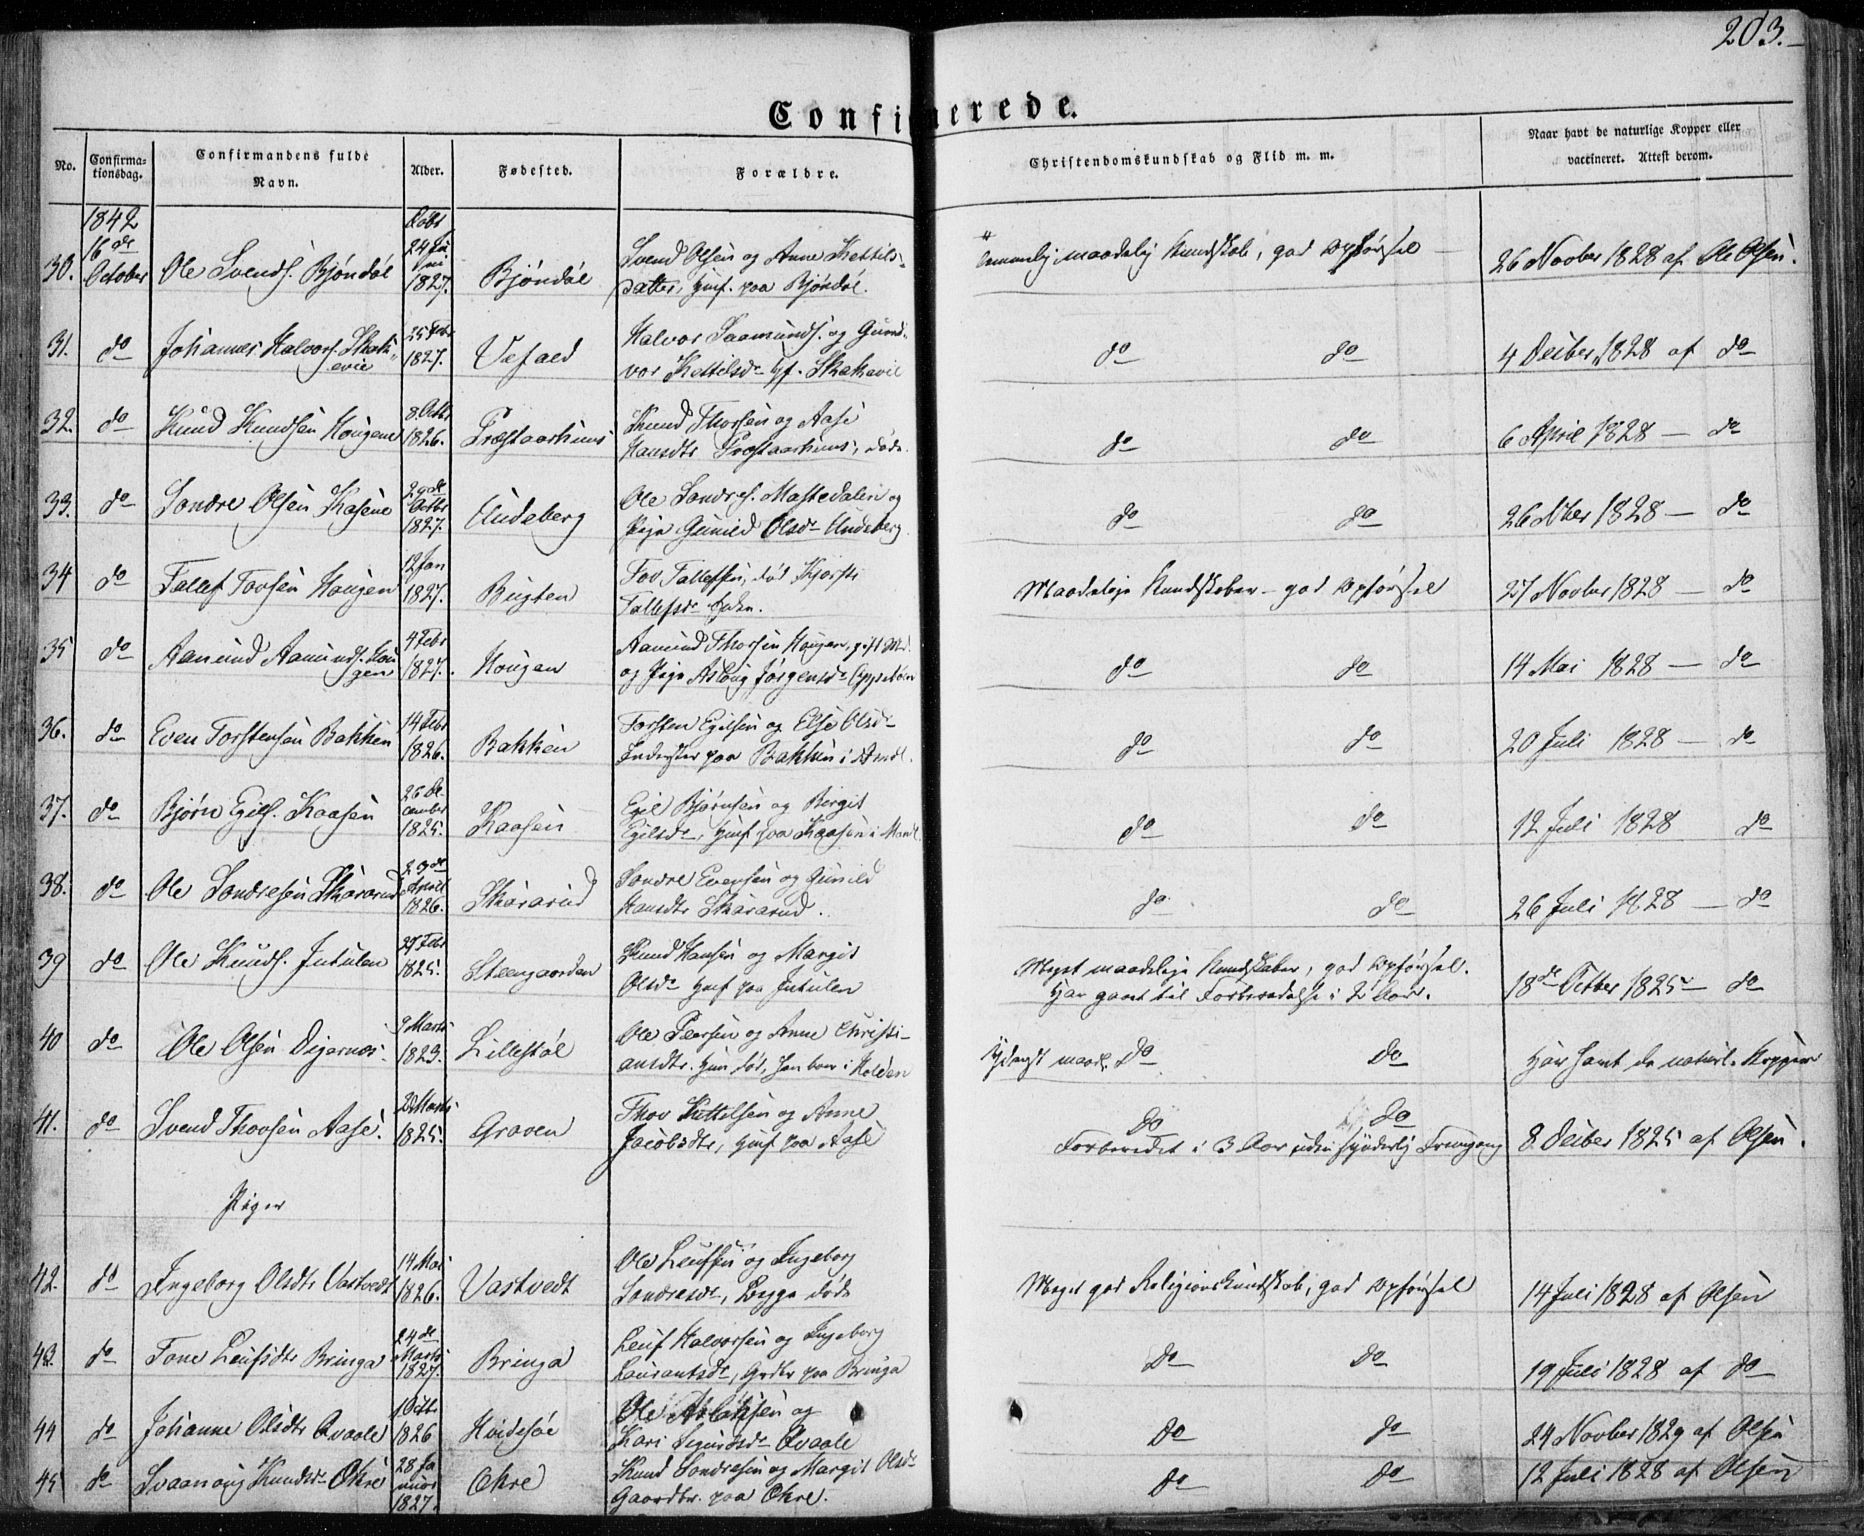 203.
Confirmerede.
No.
Confirma-
tionsdag.
Confirmandens fulde
Navn.
Alder.
Fødested.
Forældre.
Christendomskundskab og Flid m. m.
Naar havt de naturlige Kopper eller
vaccineret. Attest derom.
1842
16de
October
30. Ole Svends. Bjöndöl 24 1827. Bjöndöl Svend Olsen og Anne Kettils-
datter, Huuf. paa Bjöndöl.
maadelig Kundskab, god Opførsel 26 Novber 1828 af Ole Olsen.
31. do Johannes Halvors. Skak-
avie 25 Febr 1827. Halvor Saamunds. og Gund-
vor Kettilsdr Skakavie
do do 4 Deiber 1828 af do
32. do Knud Knudsen Hougen 8 Octbr 1826. Præstaarhuus Knud Thorsen og Aase
Hansdtr Præstaarhuus, døde.
do do 6 April 1828 — do
33. do Sondre Olsen Kasene 29de Octbr 1827. Undeberg Ole Sondres. Mastedalen og
Pige Gunild Olsdr Undeberg
do do 26 Nber 1828 — do
34 do Tallef Tovsen Hougen 12 Jan 1827. Bugten Tov Tallefsen, død Kjersti
Tallefsdr
Maadelige Kundskaber - god Opførsel 27 Novber 1828 — do
35 do Aamund Aamunds. Hou
gen 4 Febr 1827. Hougen Aamund Thorsen Hougen, gift Md.
og Pige Aslöug Jörgensdr
do do 14 Mai 1828 — do
36. do Even Torstensen Bakken 14 Febr 1826. Bakken Torsten Egilsen og Else Olsdr
Inderster paa Bakken i
do do 20 Juli 1828 — do
37. do Bjørn Egils. Kaasen 26 De-
cember 1825. Kaasen Egil Bjørnsen og Birgit
Egilsdr, Huuf paa Kaasen i
do do 12 Juli 1828 do
38. do Ole Sondresen Skårarud 29de April 1826. Skårarud Sondre Evensen og Gunild
Hansdtr Skårarud.
do do 26 Juli 1828 — do
39 do Ole Knuds. Jutulen 27 Febr 1825. Steengaarden Knud Hansen og Margit
Olsdr Huuf paa Jutulen
Meget maadelige Kundskaber, god Opførsel.
Har gaaet til Forberedelse i 2 Aar. 18de Octber 1825 — do
40 do Ole Olsen Digernes 9 Marts 1823. Lillestöl Ole Peersen og Anne Christi-
ansdtr. Hun død, han boer i Holden
Yderst maadl. Do Do Har havt de naturl. Kopper
41. do Svend Thovsen Aase. 20 Marts 1825. Graven Thov Kittelsen og Anne
Jacobsdtr, Huuf paa Aase
Do do
Forberedet i 3 Aar uden synderlig Fremgang 8. Deiber 1825 af Olsen.
Piger
42. do Ingeborg Olsdtr Vastvedt 14 Mai 1826. Vastvedt Ole Leufsen og Ingeborg
Sondresdr, Begge døde
Meget god Religionskundskab, god Opførsel 14 Juli 1828 af Olsen
43. do Tone Leufsdtr Bringa 24de Marts 1827. Bringa Leuf Halvorsen og Ingeborg
Laurantsdr, Grdbr paa Bringa
Do Do 19 Juli 1828 af do
44 do Johanne Olsdtr Qvaale 1 Octbr 1826 Hvidesöe Ole Aslaksen og
Kari Sigurdsdr Qvaale
Do do 24 Novber 1829 af Olsen
45 do Svaanaug Knudsdr Okre 28 Ja-
nuar 1827. Okre Knud Sondresen og Margit Olsdr
Gaardbr. paa Okre.
do do 12 Juli 1828 af Olsen